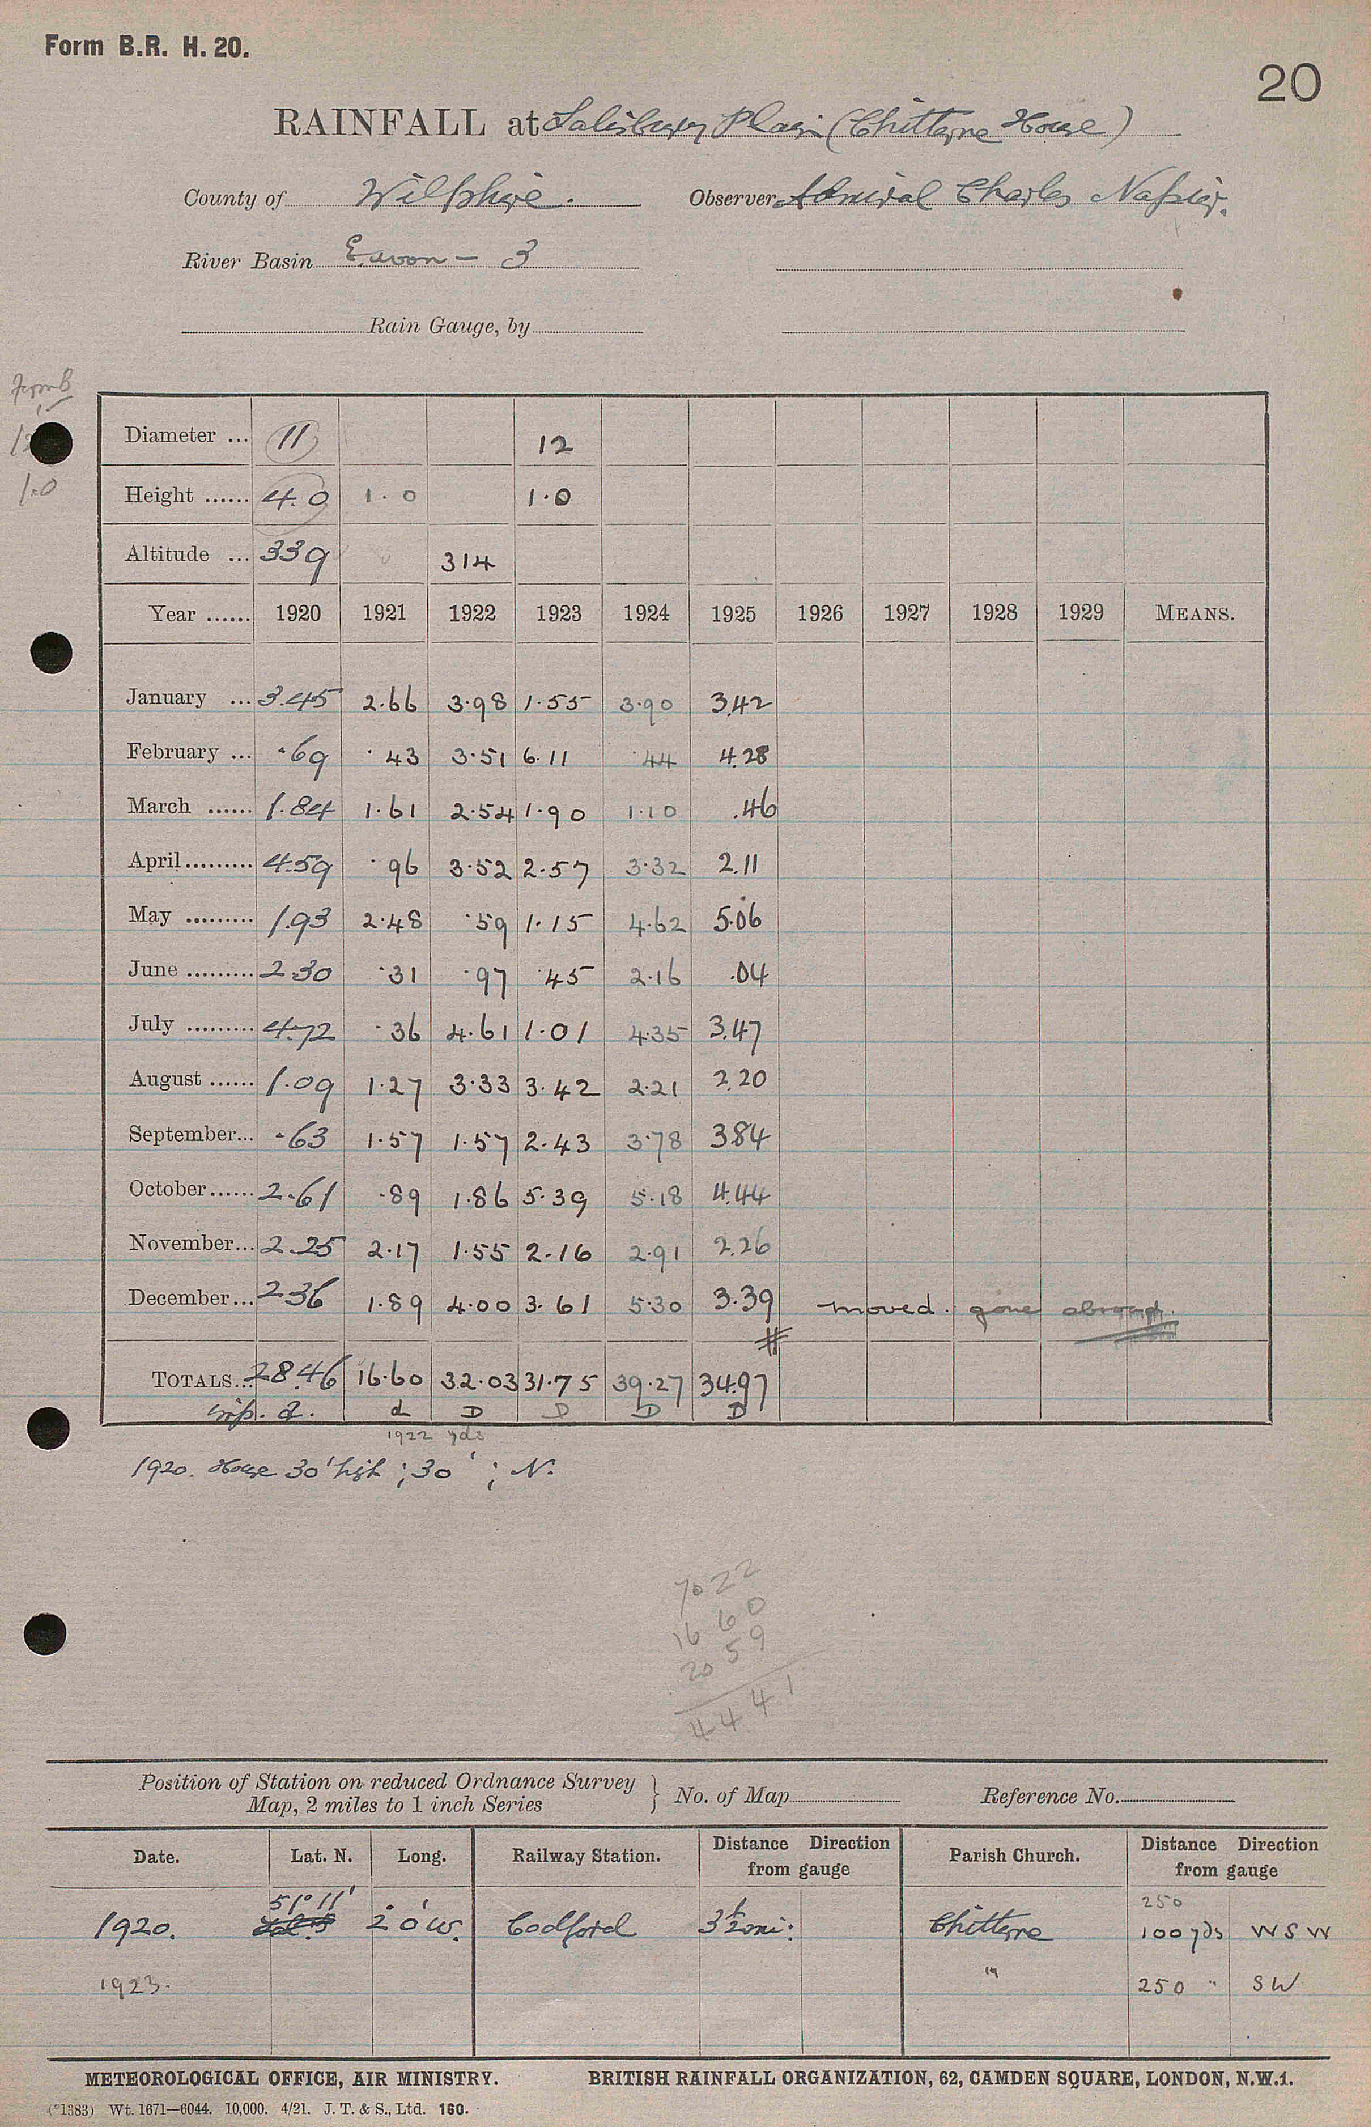 Form B.R. H. 20.
20
RAINFALL at Salisbury Plain (Chitterne House)
County of Wiltshire. Observer Admiral Charles Napier.
River Basin E. avon - 3
Rain Gauge, by
Form B
1.0
Diameter ... 11 12
Height ...... 4.0 1.0 1.0
Altitude ... 339 314
Year ...... 1920 1921 1922 1923 1924 1925 1926 1927 1928 1929 MEANS.
January ... 3.45 2.66 3.98 1.55 3.90 3.42
February ... .69 .43 3.51 6.11 .44 4.28
March ...... 1.84 1.61 2.54 1.90 1.10 .46
April ......... 4.59 .96 3.52 2.57 3.32 2.11
May ......... 1.93 2.48 .59 1.15 4.62 5.06
June ......... 2.30 .31 .97 .45 2.16 .04
July ......... 4.72 .36 4.61 1.01 4.35 3.47
August ...... 1.09 1.27 3.33 3.42 2.21 2.20
September... .63 1.57 1.57 2.43 3.78 3.84
October...... 2.61 .89 1.86 5.39 5.18 4.44
November... 2.25 2.17 1.55 2.16 2.91 2.26
December... 2.36 1.89 4.00 3.61 5.30 3.39 moved. gone abroad.
TOTALS... 28.46 16.60 32.03 31.75 39.27 34.97
d. d D D D D
1922 yds
1920. House 30' high ; 30' ; N.
7022
16 60
20 59
4441
Position of Station on reduced Ordnance Survey
Map, 2 miles to 1 inch Series } No. of Map Reference No.
Date. Lat. N. Long. Railway Station. Distance Direction from gauge Parish Church. Distance Direction from gauge
51° 11' 250
1920. 2° 0' W. Codford 3½ mi: Chitterne 100 yds W S W
1923. " 250 " S W
METEOROLOGICAL OFFICE, AIR MINISTRY. BRITISH RAINFALL ORGANIZATION, 62, CAMDEN SQUARE, LONDON, N.W.1.
(*1383) Wt. 1671—6044. 10,000. 4/21. J. T. & S., Ltd. 160.